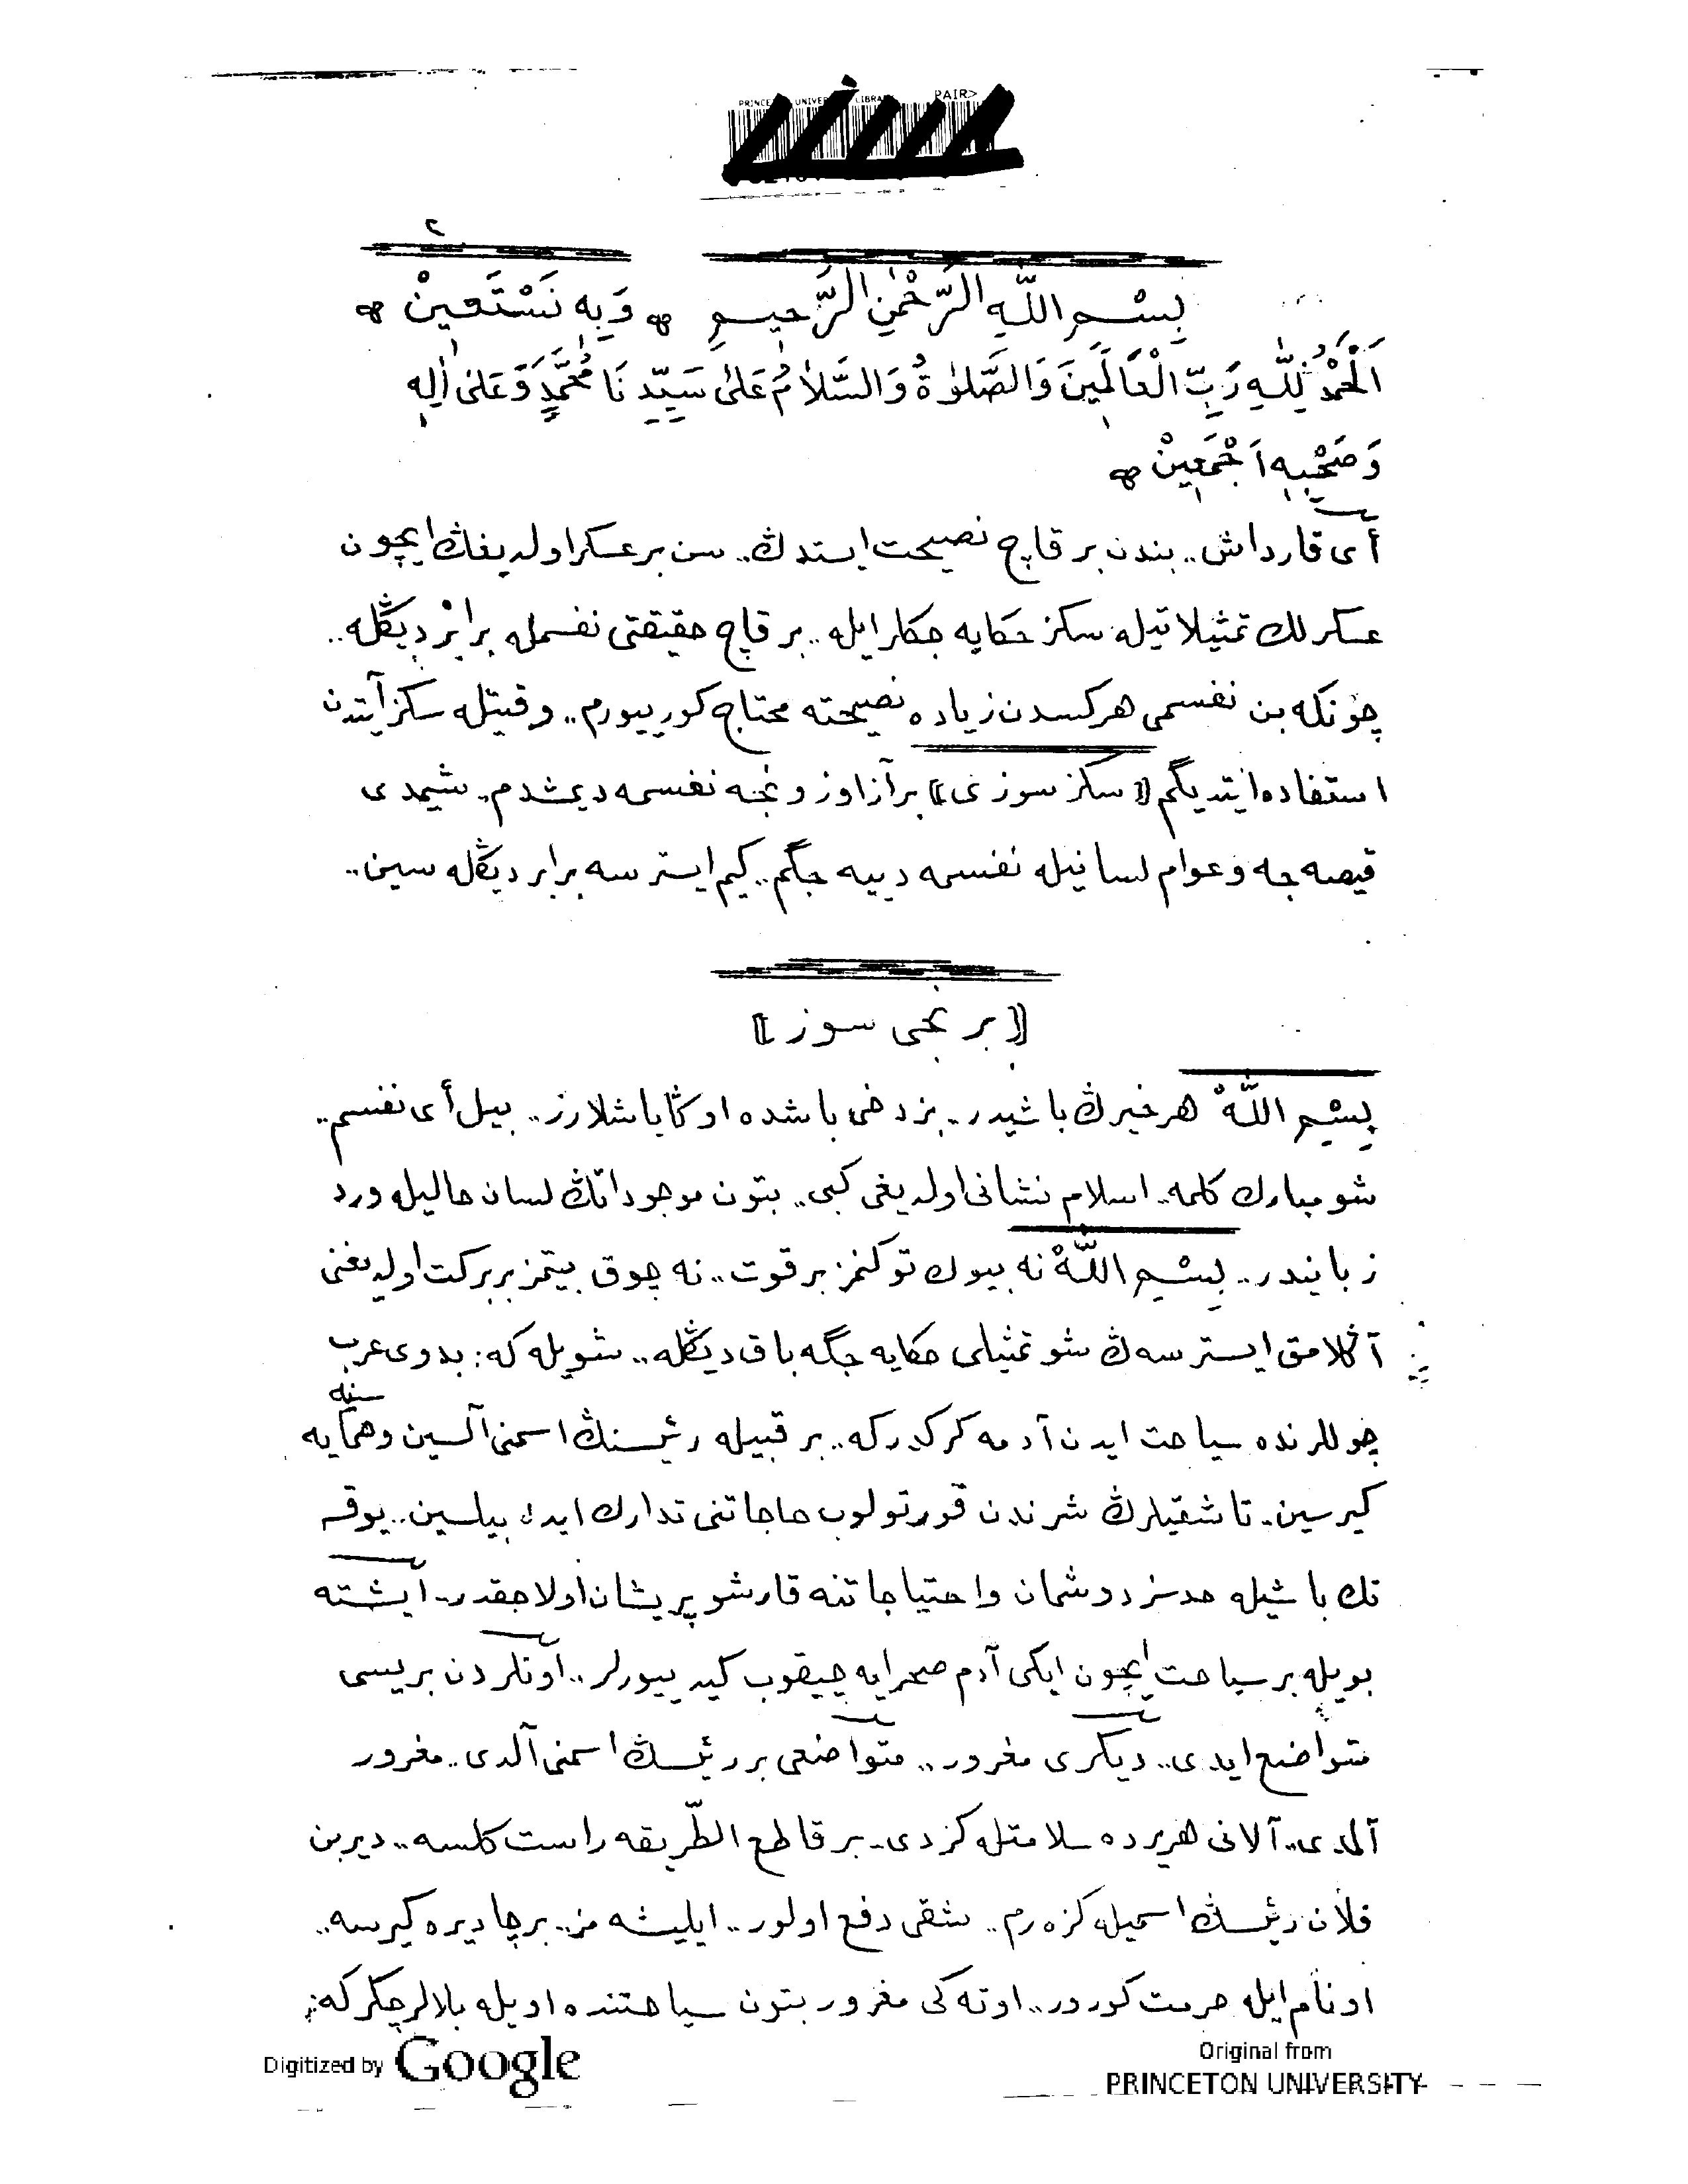 PRINCETON UNIVERSITY LIBRARY PAIR>
٢
بِسْمِ اللّٰهِ الرَّحْمٰنِ الرَّحِيمِ ۞ وَبِهِ نَسْتَعِينْ ۞
اَلْحَمْدُ لِلّٰهِ رَبِّ الْعَالَمِينَ وَالصَّلٰوةُ وَالسَّلَامُ عَلٰى سَيِّدِنَا مُحَمَّدٍ وَعَلٰى اٰلِهِ
وَصَحْبِهِ اَجْمَعِينْ ۞
أى قارداش.. بندن بر قاچ نصيحت ايستدڭ.. سن بر عسكر اولديغڭ ايچون
عسكرلك تمثيلاتيله سكز حكايه جكلر ايله.. بر قاچ حقيقتى نفسمله برابر ديڭله..
چونكه بن نفسمى هركسدن زياده نصيحته محتاج كورييورم.. وقتيله سكز آيتدن
استفاده ايتديگم ⟦سكز سوزى⟧ بر آز اوزونجه نفسمه ديمشدم. شيمدى
قيصه جه و عوام لسانيله نفسمه دييه جگم.. كيم ايسترسه برابر ديڭله سين..
⟦برنجى سوز⟧
بِسْمِ اللّٰهْ هر خيرڭ باشيدر.. بز دخى باشده اوڭا باشلارز.. بيل أى نفسم..
شو مبارك كلمه.. اسلام نشانى اولديغى كبى.. بتون موجوداتڭ لسان حاليله ورد
زبانيدر.. بِسْمِ اللّٰهْ نه بيوك توكنمز بر قوت.. نه چوق بيتمز بر بركت اولديغنى
آڭلامق ايسترسه ڭ شو تمثيلى حكايه جگه باق ديڭله.. شويله كه: بدوى عرب
چوللرنده سياحت ايدن آدمه كركدركه.. بر قبيله رئيسنڭ اسمنى آلسين و حمايه سنه
كيرسين.. تا شقيلرڭ شرندن قورتولوب حاجاتنى تدارك ايده بيلسين.. يوقسه
تك باشيله حدسز دوشمان و احتياجاتنه قارشو پريشان اولاجقدر.. ايشته
بويله بر سياحت ايچون ايكى آدم صحرايه چيقوب كيدييورلر.. اونلردن بريسى
متواضع ايدى.. ديكرى مغرور.. متواضعى بر رئيسڭ اسمنى آلدى.. مغرور
آلمدى.. آلانى هر يرده سلامتله كزدى.. بر قاطع الطّريقه راست كلسه.. ديربن
فلان رئيسڭ اسميله كزه رم.. شقى دفع اولور.. ايليشه مز.. بر چاديره كيرسه..
او نام ايله حرمت كورور.. اوته كى مغرور بتون سياحتنده اويله بلالر چكر كه:
Digitized by Google
Original from
PRINCETON UNIVERSITY